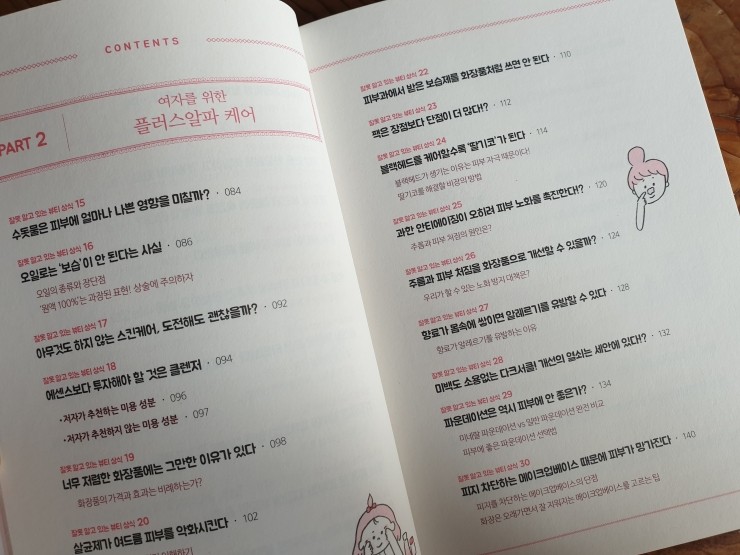 CONTENTS
PART 2
여자를 위한
플러스알파 케어
잘못 알고 있는 뷰티 상식 15
수돗물은 피부에 얼마나 나쁜 영향을 미칠까? · 084
잘못 알고 있는 뷰티 상식 16
오일로는 '보습'이 안 된다는 사실 · 086
오일의 종류와 장단점
'원액 100%'는 과장된 표현! 상술에 주의하자
잘못 알고 있는 뷰티 상식 17
아무것도 하지 않는 스킨케어, 도전해도 괜찮을까? · 092
잘못 알고 있는 뷰티 상식 18
에센스보다 투자해야 할 것은 클렌저 · 094
• 저자가 추천하는 미용 성분 · 096
• 저자가 추천하지 않는 미용 성분 · 097
잘못 알고 있는 뷰티 상식 19
너무 저렴한 화장품에는 그만한 이유가 있다 · 098
화장품의 가격과 효과는 비례하는가?
잘못 알고 있는 뷰티 상식 20
살균제가 여드름 피부를 악화시킨다 · 102
잘못 알고 있는 뷰티 상식 22
피부과에서 받은 보습제를 화장품처럼 쓰면 안 된다 · 110
잘못 알고 있는 뷰티 상식 23
팩은 장점보다 단점이 더 많다!? · 112
잘못 알고 있는 뷰티 상식 24
블랙헤드를 케어할수록 '딸기코'가 된다 · 114
블랙헤드가 생기는 이유는 피부 자극 때문이다!
딸기코를 해결할 비장의 방법
잘못 알고 있는 뷰티 상식 25
과한 안티에이징이 오히려 피부 노화를 촉진한다!? · 120
주름과 피부 처짐의 원인은?
잘못 알고 있는 뷰티 상식 26
주름과 피부 처짐을 화장품으로 개선할 수 있을까? · 124
우리가 할 수 있는 노화 방지 대책은?
잘못 알고 있는 뷰티 상식 27
향료가 몸속에 쌓이면 알레르기를 유발할 수 있다 · 128
향료가 알레르기를 유발하는 이유
잘못 알고 있는 뷰티 상식 28
미백도 소용없는 다크서클! 개선의 열쇠는 세안에 있다!? · 132
잘못 알고 있는 뷰티 상식 29
파운데이션은 역시 피부에 안 좋은가? · 134
미네랄 파운데이션 vs 일반 파운데이션 완전 비교
피부에 좋은 파운데이션 선택법
잘못 알고 있는 뷰티 상식 30
피지 차단하는 메이크업베이스 때문에 피부가 망가진다 · 140
피지를 차단하는 메이크업베이스의 단점
화장은 오래가면서 잘 지워지는 메이크업베이스를 고르는 팁